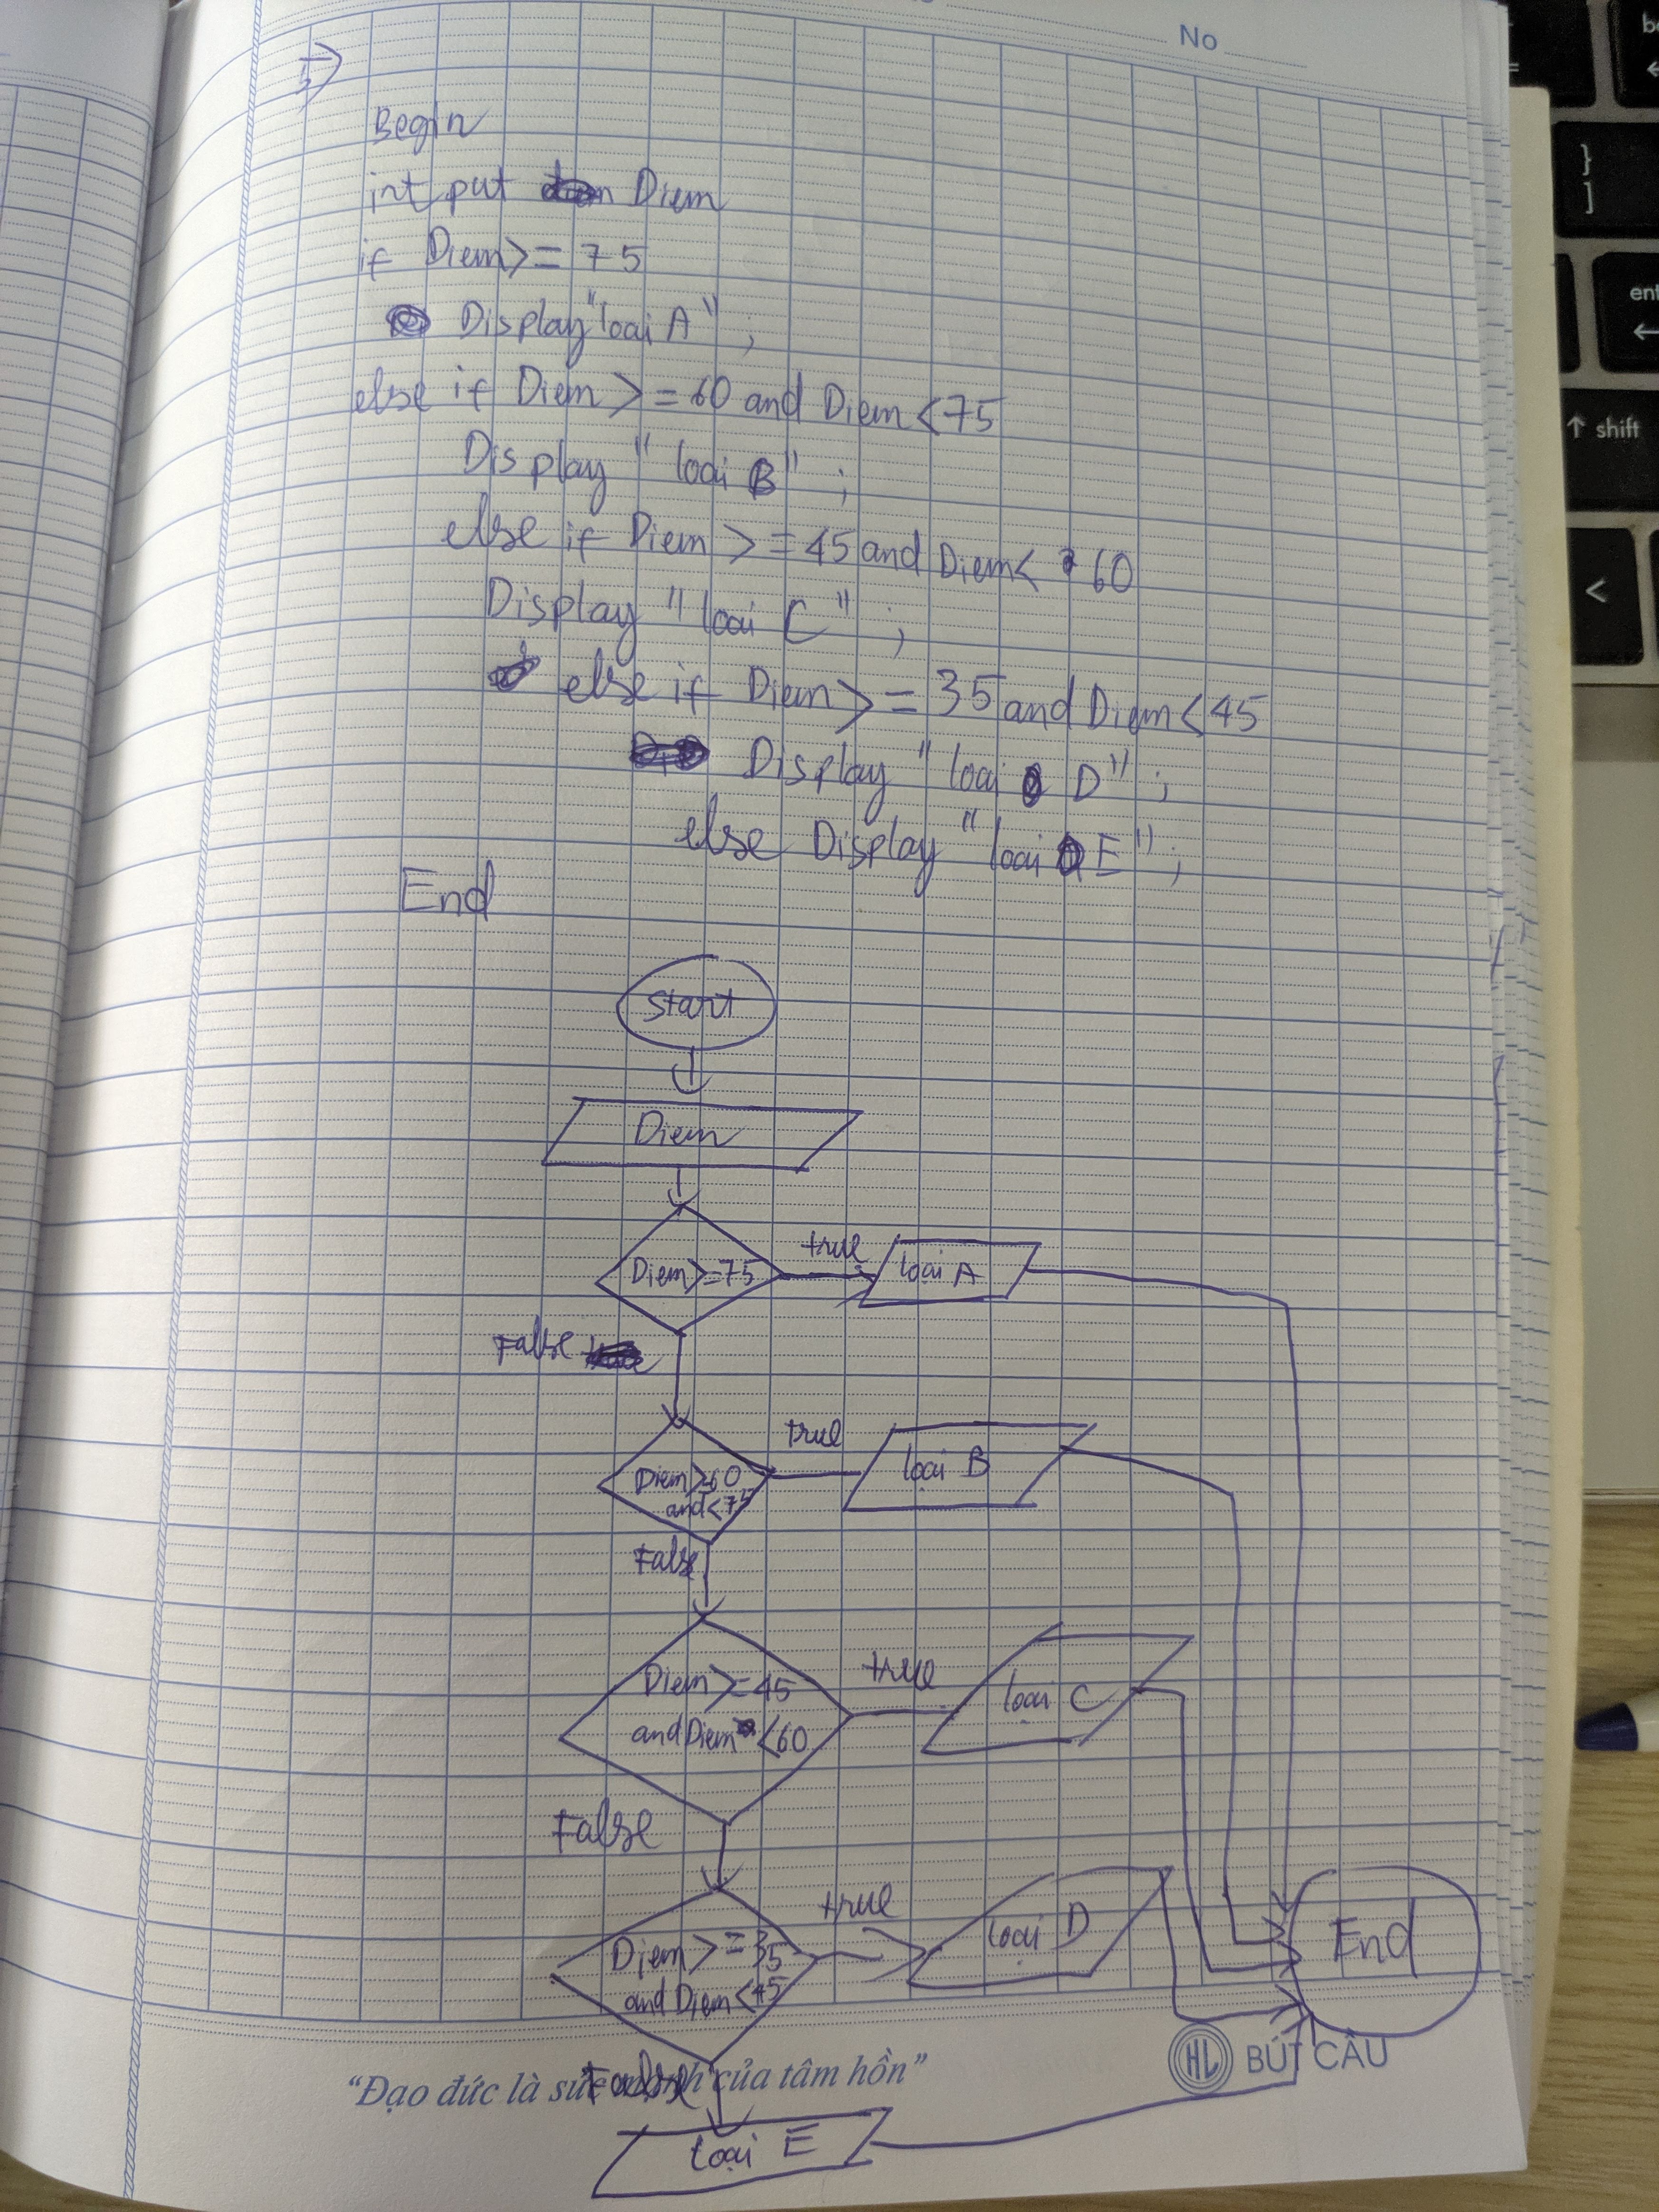 No
5)
Begin
int put Diem
if Diem >= 75
Display "loai A" ;
else if Diem >= 60 and Diem < 75
Display "loai B" ;
else if Diem >= 45 and Diem < 60
Display "loai C" ;
else if Diem >= 35 and Diem < 45
Display "loai D" ;
else Display "loai E" ;
End
Start
Diem
Diem >= 75
true
loại A
False
Diem >= 60
and < 75
true
loại B
False
Diem >= 45
and Diem < 60
true
loại C
False
Diem >= 35
and Diem < 45
true
loại D
End
False
loại E
"Đạo đức là sức mạnh của tâm hồn"
HL BÚT CẦU
}
]
ent
↑ shift
<